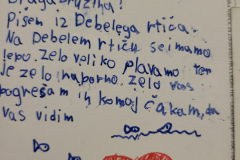 Draga družina!
Pišem iz Debelega rtiča.
Na Debelem rtiču se imamo
lepo. Zelo veliko plavamo ter
je zelo naporno. Zelo vas
pogrešam in komaj čakam, da
vas vidim